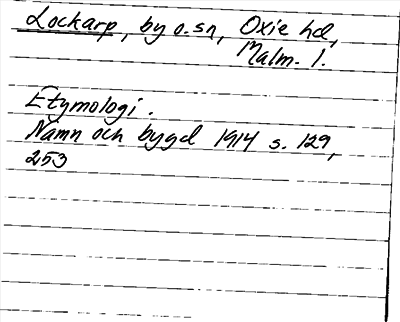 Lockarp, by o. sn, Oxie hd,
Malm. l.
Etymologi.
Namn och bygd 1914 s. 129,
253